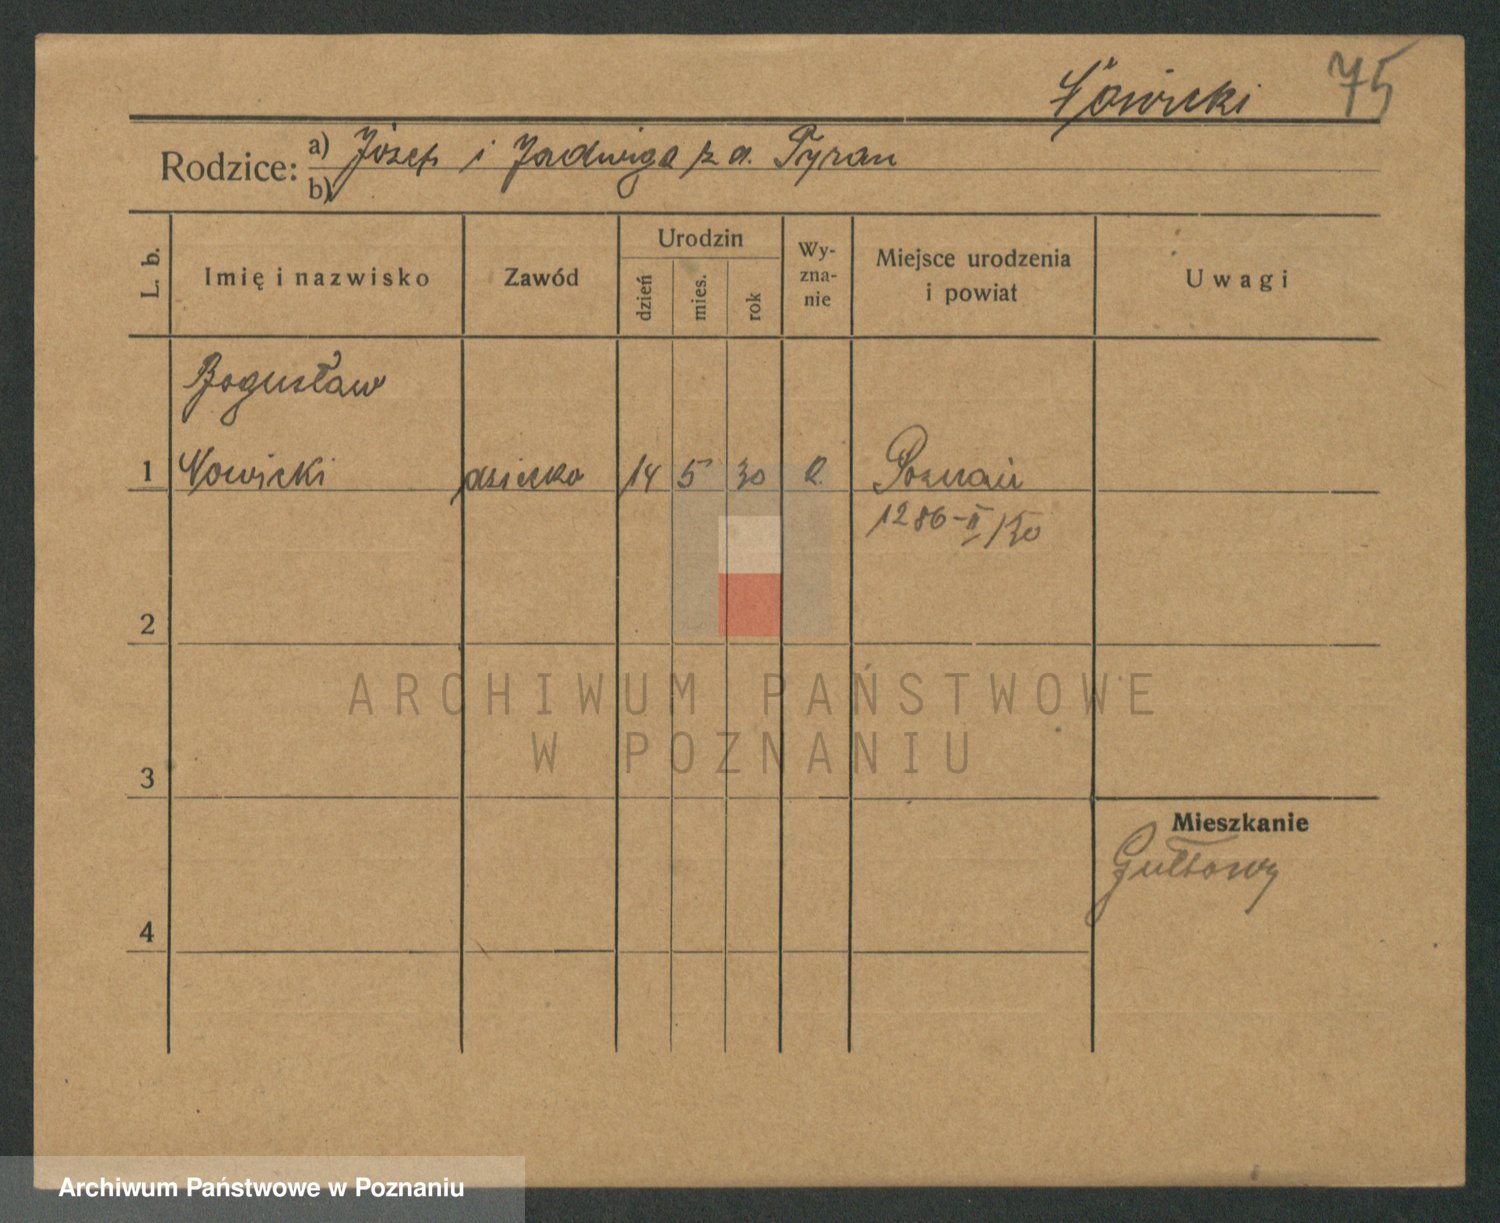 Nowicki 75
Rodzice: a) Józef i Jadwiga z d. Pyran
b)
L. b. Imię i nazwisko Zawód Urodzin dzień mies. rok Wy-zna-nie Miejsce urodzenia i powiat Uwagi
Bogusław
1 Nowicki dziecko 14 5 30 Poznań
1286-II/30
2
ARCHIWUM PAŃSTWOWE
W POZNANIU
3
Mieszkanie
Gułtowy
4
Archiwum Państwowe w Poznaniu